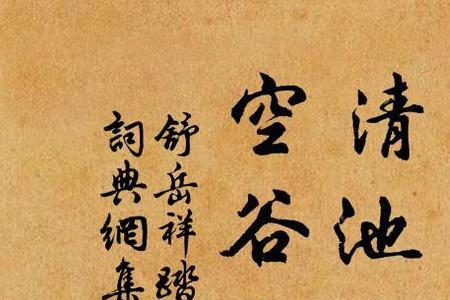 清池
空谷
舒岳祥踏
詞典網集